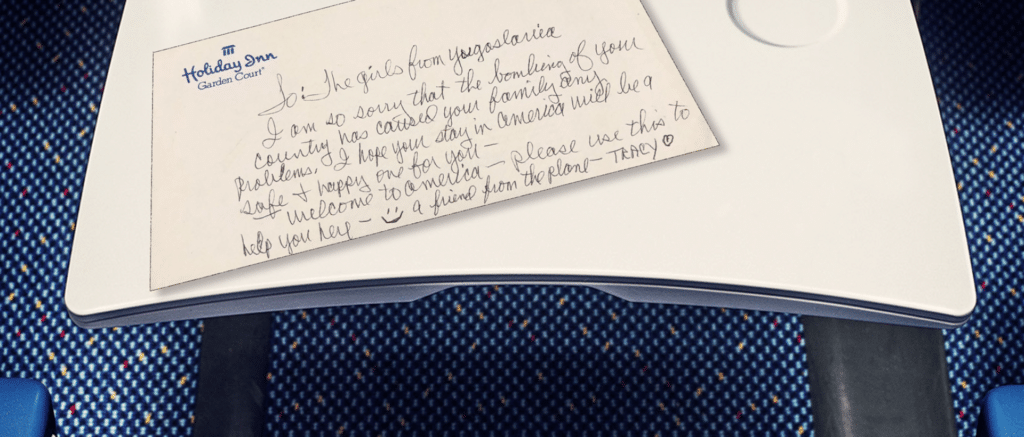 Holiday Inn
Garden Court®
To: The girls from Yugoslavia
I am so sorry that the bombing of your
country has caused your family any
problems. I hope your stay in America will be a
safe + happy one for you –
Welcome to America – please use this to
help you here – a friend from the plane – TRACY